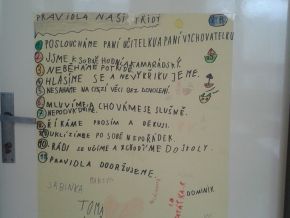 PRAVIDLA NAŠÍ TŘÍDY
1 POSLOUCHÁME PANÍ UČITELKU A PANÍ VYCHOVATELKU
2 JSME K SOBĚ HODNÍ A KAMARÁDSKÝ.
3 NEBĚHÁME PO TŘÍDĚ.
4 HLÁSÍME SE A NEVYKŘIKUJEME.
5 NESAHÁME NA CIZÍ VĚCI BEZ DOVOLENÍ.
6 MLUVÍME A CHOVÁME SE SLUŠNĚ.
7 NEPODVÁDÍME.
8 ŘÍKÁME PROSÍM A DĚKUJI.
9 UKLÍZÍME PO SOBĚ NEPOŘÁDEK.
10 RÁDI SE UČÍME A CHODÍME DO ŠKOLY.
PRAVIDLA DODRŽUJEME.
SABINKA
DOMINIK
TOMÁ